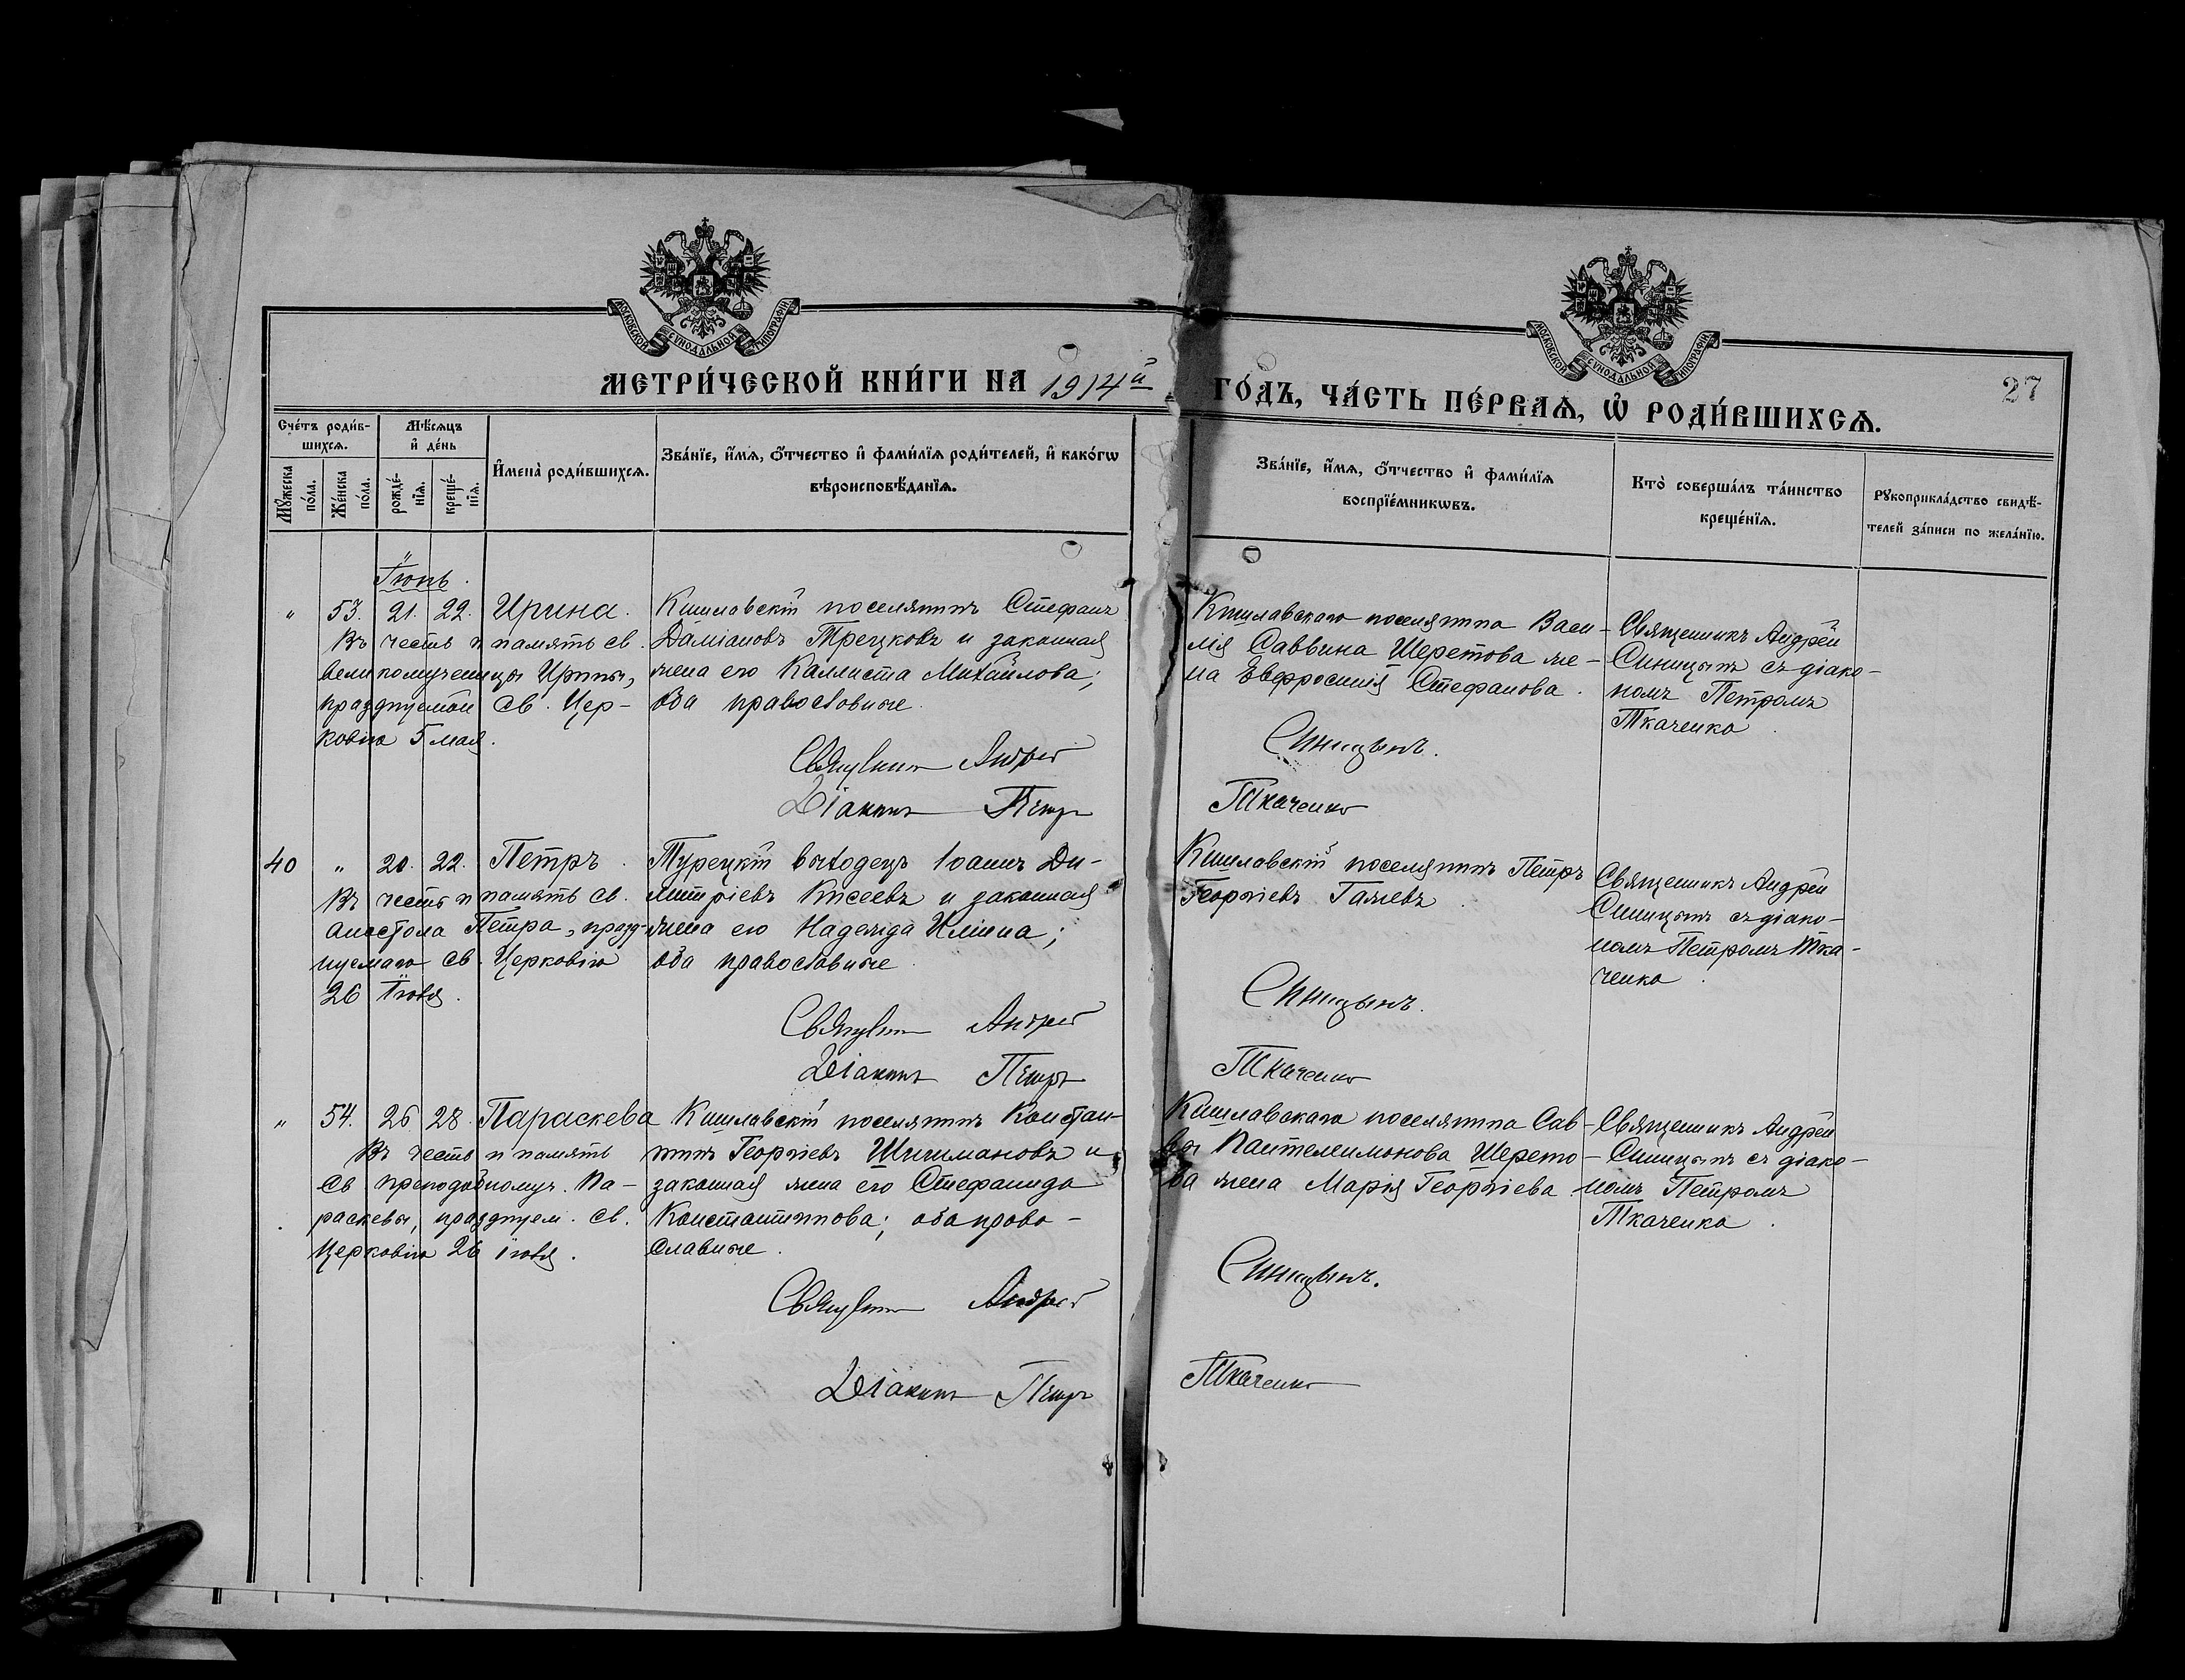 МОСКОВСКОЙ СУНОДАЛЬНОЙ ТИПОГРАФІИ
МОСКОВСКОЙ СУНОДАЛЬНОЙ ТИПОГРАФІИ
МЕТРИ́ЧЕСКОЙ КНИ́ГИ НА 1914й ГО́ДЪ, ЧА́СТЬ ПЕ́РВАѦ, Ѡ҆ РОДИ́ВШИХСѦ.
27
Сче́тъ роди́в-
шихсѧ.
Мѣ́сѧцъ
и҆ де́нь
Мꙋ́жеска
по́ла.
Же́нска
по́ла.
рожде́-
нїѧ.
креще́-
нїѧ.
И҆мена̀ роди́вшихсѧ.
Зва́нїе, и҆́мѧ, ѻ҆́тчество и҆ фами́лїѧ роди́телей, и҆ како́гѡ
вѣроисповѣ́данїѧ.
Зва́нїе, и҆́мѧ, ѻ҆́тчество и҆ фами́лїѧ
воспрїе́мникѡвъ.
Кто̀ соверша́лъ та́инство
креще́нїѧ.
Рꙋкоприкла́дство свидѣ́-
телей за́писи по жела́нїю.
Іюнь.
" 53. 21. 22. Ирина.
Въ честь и память св.
великомученицы Ирины,
празднуемой св. Цер-
ковію 5 мая.
Кишлавскій поселянинъ Стефанъ
Даміановъ Трецковъ и законная
жена его Каллиста Михайлова;
оба православные.
Священникъ Андрей
Діаконъ Петръ
Кишлавскаго поселянина Васи-
лія Саввина Шеретова же-
на Евфросинія Стефанова.
Синицынъ.
Ткаченко
Священникъ Андрей
Синицынъ съ діако-
номъ Петромъ
Ткаченко.
40 " 20. 22. Петръ.
Въ честь и память св.
апостола Петра, празд-
нуемаго св. Церковію
26 Іюня.
Турецкій выходецъ Іоаннъ Ди-
митріевъ Кисеевъ и законная
жена его Надежда Иліина;
оба православные.
Священникъ Андрей
Діаконъ Петръ
Кишлавскій поселянинъ Петръ
Георгіевъ Галевъ.
Синицынъ.
Ткаченко
Священникъ Андрей
Синицынъ съ діако-
номъ Петромъ Тка-
ченко.
" 54. 26 28. Параскева
Въ честь и память
св преподобномуч. Па-
раскевы, празднуем. св.
Церковію 26 іюля.
Кишлавскій поселянинъ Констан-
тинъ Георгіевъ Шишмановъ и
законная жена его Стефанида
Константинова; оба право-
славные.
Священникъ Андрей
Діаконъ Петръ
Кишлавскаго поселянина Сав-
вы Пантелеимонова Шерето-
ва жена Марія Георгіева
Синицынъ.
Ткаченко
Священникъ Андрей
Синицынъ съ діако-
номъ Петромъ
Ткаченко.